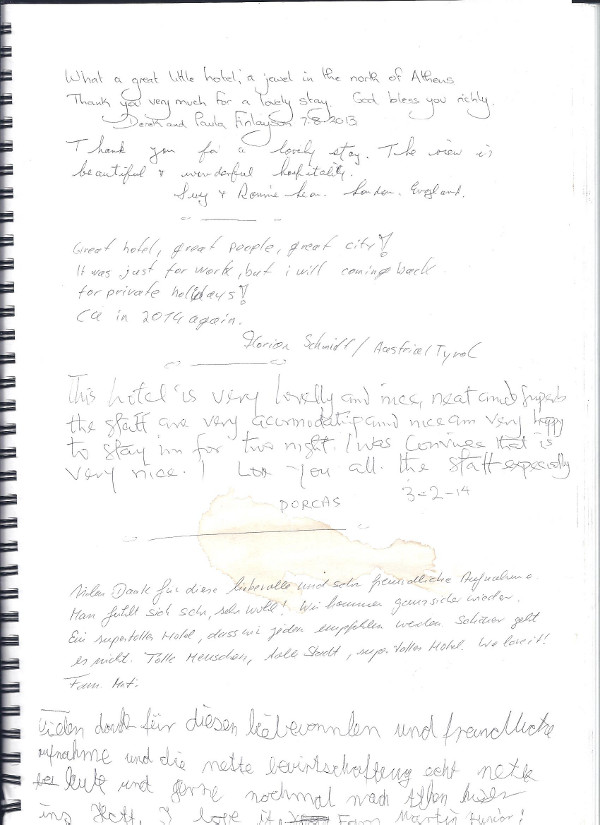 What a great little hotel; a jewel in the north of Athens
Thank you very much for a lovely stay. God bless you richly.
Derek and Paula Finlayson 7.8.2013
Thank you for a lovely stay. The view is
beautiful & wonderful hospitality.
Suzy & Ronnie London. England.
Great hotel, great people, great city!
It was just for work, but i will coming back
for private holidays!
CU in 2014 again.
Florian Schmidt / Austria / Tyrol
This hotel is very lovelly and nice, neat and superb
the staff are very acurmodating and nice am very happy
to stay im for two night. I was convinee that is
very nice. ! Lov you all. the staff especially
DORCAS 3-2-14
Vielen Dank für diese liebevolle und sehr freundliche Aufnahme.
Man fühlt sich sehr, sehr wohl! Wir kommen ganz sicher wieder.
Ein supertolles Hotel, dass wir jedem empfehlen werden. Schöner geht
es nicht. Tolle Menschen, tolle Stadt, supertolles Hotel. We love it!
Fam.
Vielen dank für diesen liebevonnlen und freundliche
aufnahme und die nette bewirtschaftung echt nette
leute und gerne nochmal nach Athen
ins Hotl. I love it Fam Martin Junior!